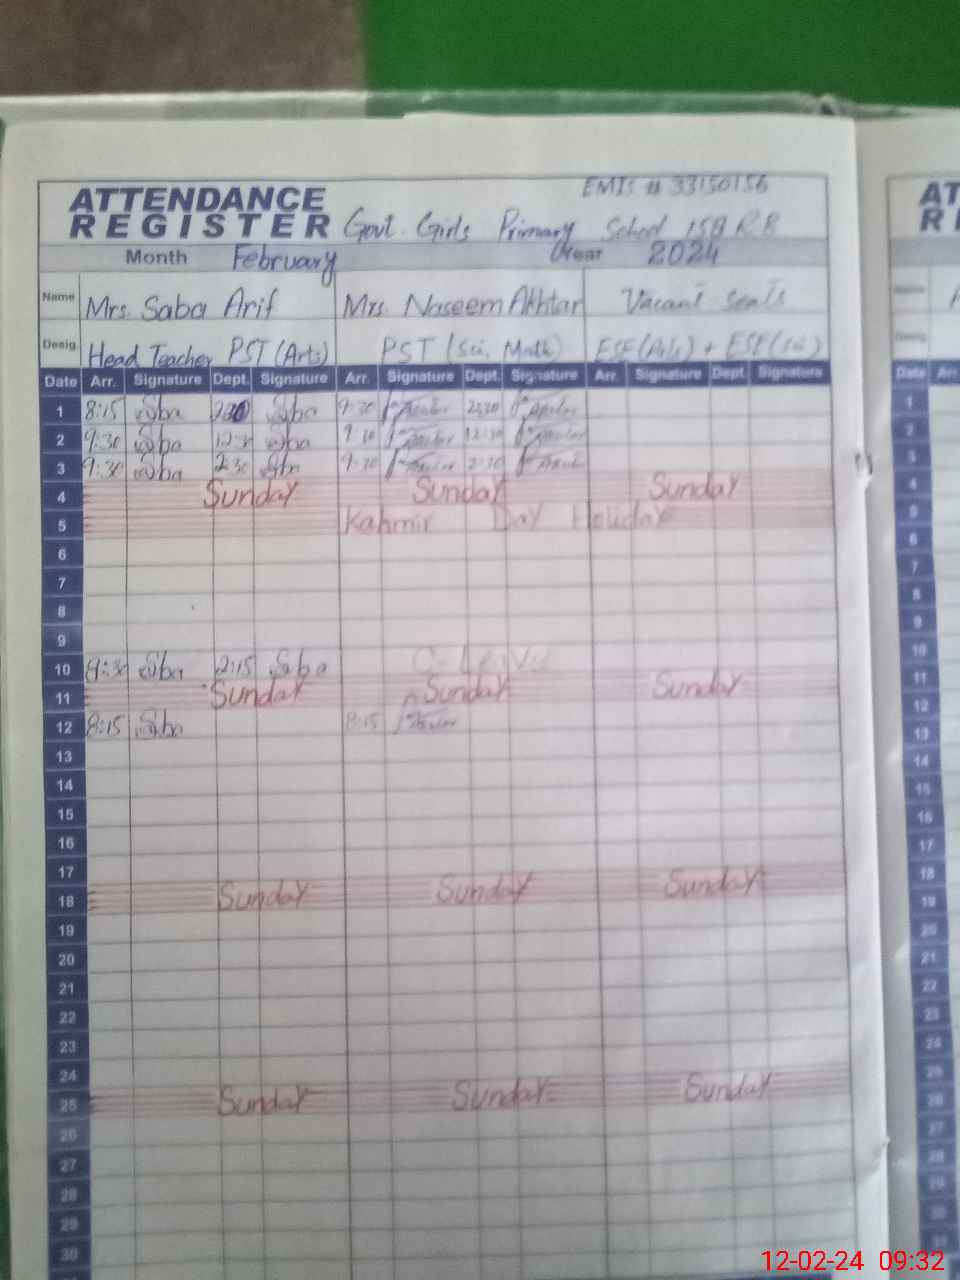 EMIS # 33150156
ATTENDANCE
REGISTER Govt. Girls Primary School 158 R.B
Month February Year 2024
Name Mrs. Saba Arif Mrs. Naseem Akhtar Vacant seats
Desig. Head Teacher PST (Arts) PST (Sci, Math) ESE(Arts) + ESE(sci)
Date Arr. Signature Dept. Signature Arr. Signature Dept. Signature Arr. Signature Dept. Signature
1 8:15 Saba Saba 9:30
2 9:30 Saba 12:30 Saba 9:30 12:30
3 9:30 Saba 2:30 Saba 9:30 2:30
4 Sunday Sunday Sunday
5 Kahmir Day Holiday
6
7
8
9
10 Saba 2:15 Saba C-Leave
11 Sunday Sunday Sunday
12 8:15 Saba 8:15
13
14
15
16
17
18 Sunday Sunday Sunday
19
20
21
22
23
24
25 Sunday Sunday Sunday
26
27
28
29
30
AT
RE
Date Arr
1
2
3
4
5
6
7
8
9
10
11
12
13
14
15
16
17
18
19
20
21
22
23
24
12-02-24 09:32